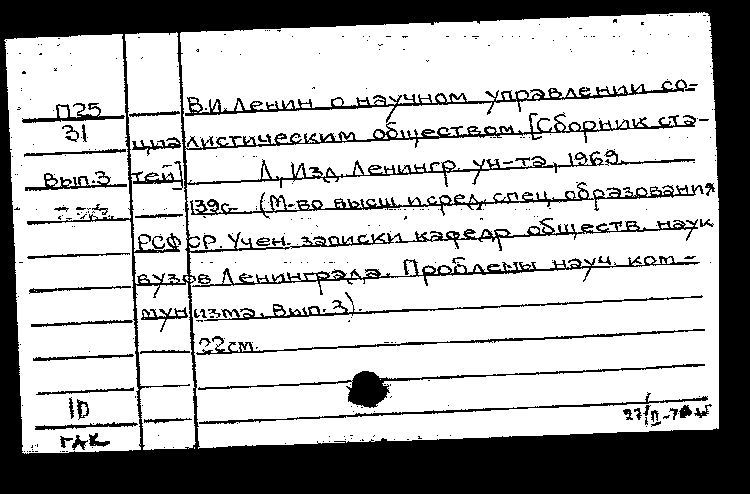 П25 В.И. Ленин о научном управлении со-
31 циалистическим обществом. [Сборник ста-
Вып.3 тей] Л., Изд. Ленингр. ун-та, 1969.
139с. (М-во высш. и сред. спец. образования
РСФСР. Учен. записки кафедр обществ. наук
вузов Ленинграда. Проблемы науч. ком-
мунизма. Вып. 3).
22см.
10
ГАК 27/II-70